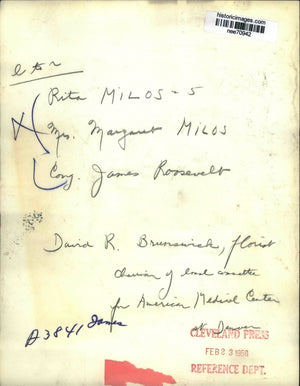 historicimages.com
nee70942
l to r
Rita MILOS - 5
Mrs. Margaret MILOS
Cong. James Roosevelt
David R. Brunswick, florist
Chairman of local committee
for American Medical Center
at Denver
A3841 James
CLEVELAND PRESS
FEB 23 1960
REFERENCE DEPT.